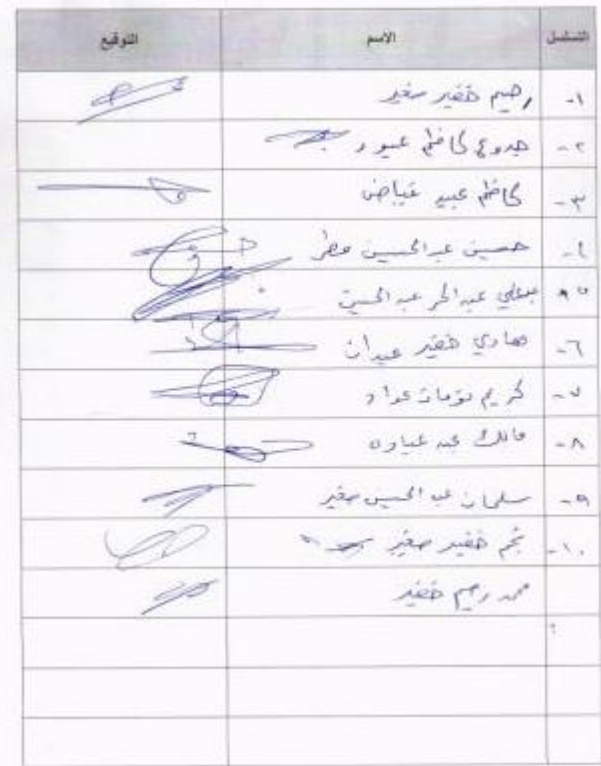 التسلسل الاسم التوقيع
١- رحيم خضير صغير
٢- جدوع كاظم عبود
٣- كاظم عبيد غياض
٤- حسين عبد الحسين مطر
٥- عبد الحر عبد الحسين
٦- هادي خضير عبدان
٧- كريم عواد
٨- مالك عبد عباده
٩- سلمان عبد الحسين صغير
١٠- نجم خضير صغير
محمد رحيم خضير